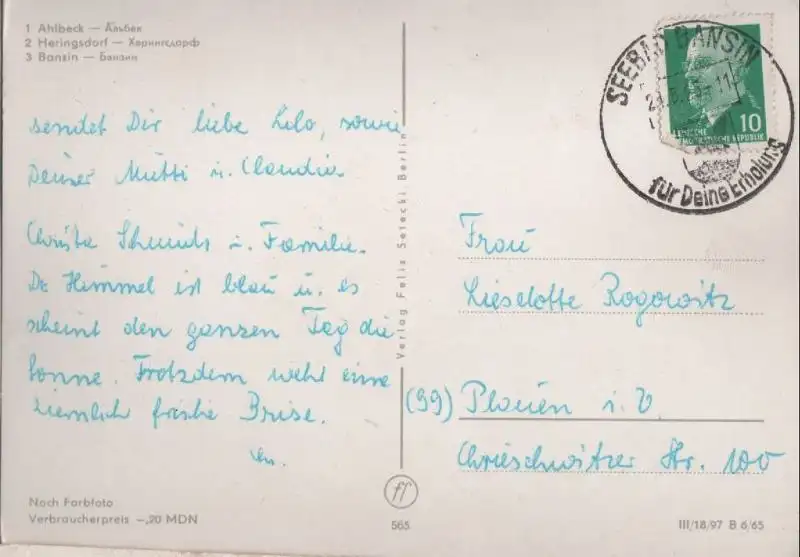 1 Ahlbeck — Альбек
2 Heringsdorf — Харингсдорф
3 Banzin — Банзин
sendet Dir liebe Lilo, sowie
Deiner Mutti u. Claudia.
Christa Schmidt u. Familie.
De Himmel ist blau u. es
scheint den ganzen Tag die
Sonne. Trotzdem weht eine
ziemlich frische Brise.
Nach Farbfoto
Verbraucherpreis –,20 MDN
Verlag Felix Setecki Berlin
ff
565
SEEBAD BANSIN
für Deine Erholung
10
DEUTSCHE
DEMOKRATISCHE REPUBLIK
Frau
Lieselotte Rogowitz
(99) Plauen i. V.
Chrieschwitzer Str. 100
III/18/97 B 6/65